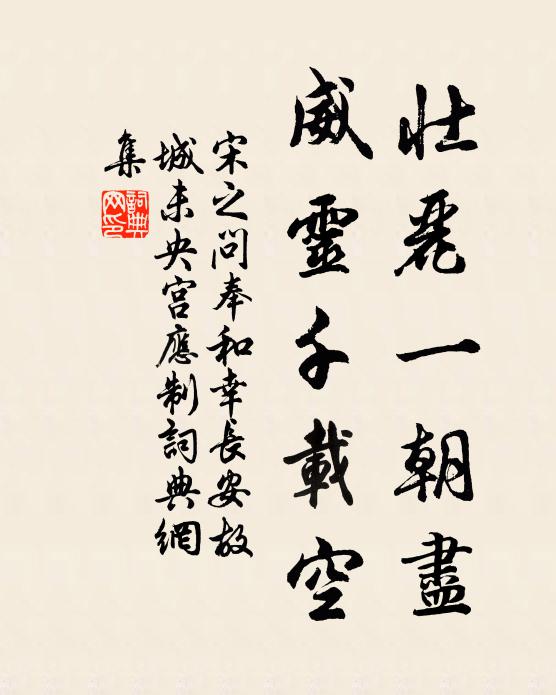 壮麗一朝盡
威靈千載空
宋之问奉和幸長安故
城未央宫應制詞典網
集
詞典
网印